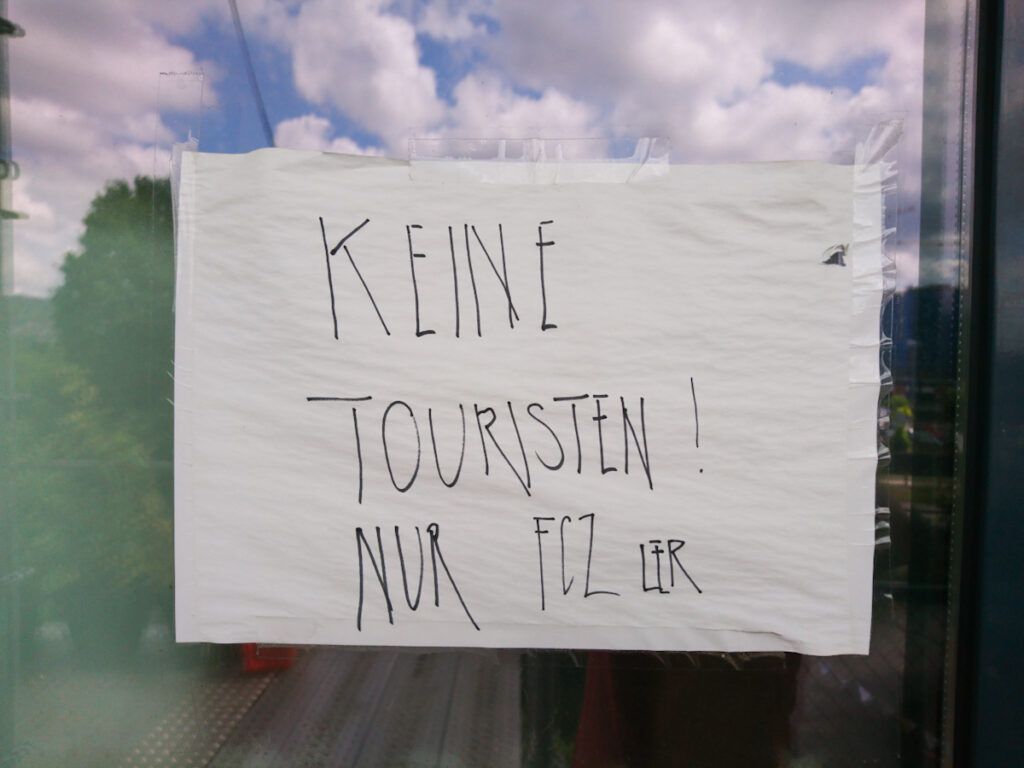 KEINE
TOURISTEN!
NUR FCZ LER